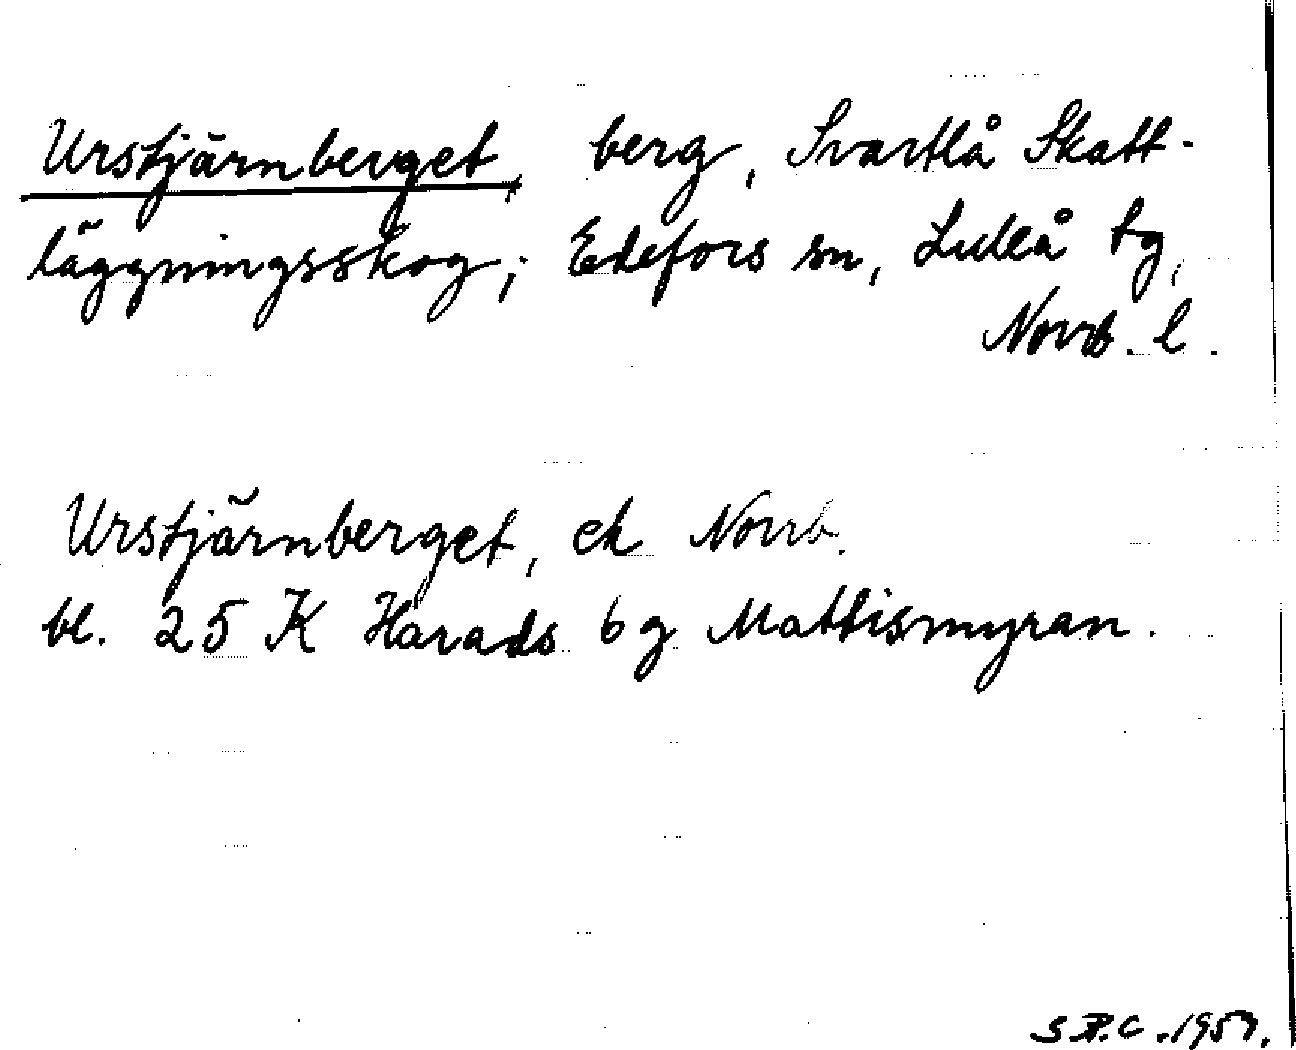 Urstjärnberget, berg, Svartlå Skatt-
läggningsskog; Edefors sn, Luleå tg,
Norrb. l.
Urstjärnberget, ek Norrb.
bl. 25 K Harads bg Mattismyran.
S.P.C. 1957.